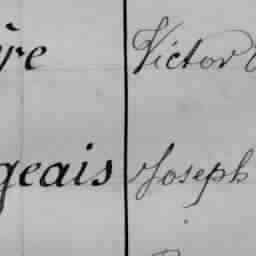 ère Victor
geais Joseph